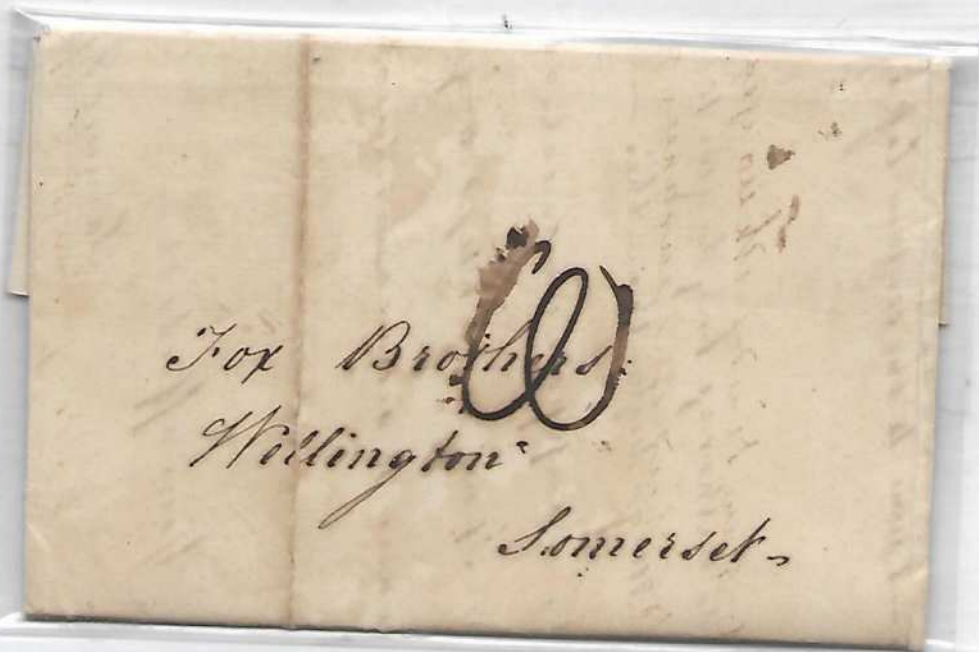 Fox Brothers
Wellington
Somerset